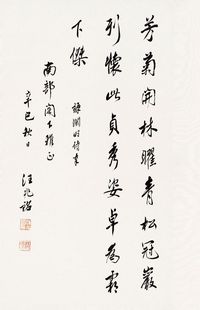 芳菊開林曜青松冠巖
列懷此貞秀姿卓為霜
下傑
淵明
南部閣下雅正
辛巳秋日
汪兆銘